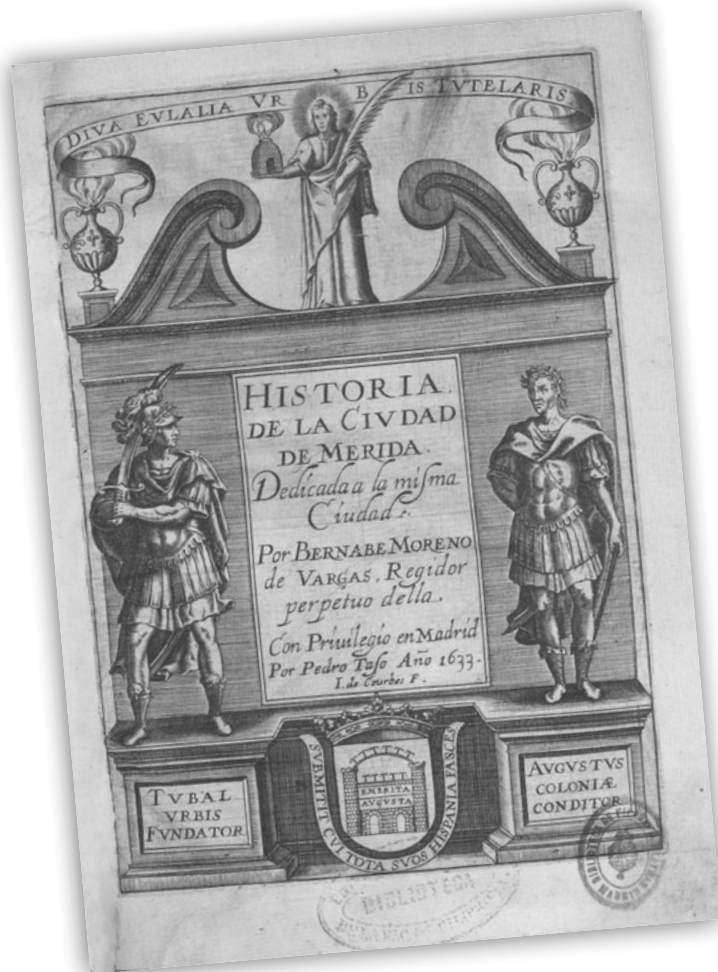 DIVA EVLALIA VRBIS TVTELARIS
HISTORIA.
DE LA CIVDAD
DE MERIDA.
Dedicada a la misma
Ciudad.
Por BERNABE MORENO
de VARGAS, Regidor
perpetuo della.
Con Priuilegio en Madrid
Por Pedro Taso Año 1633.
I. de Courbes F.
TVBAL
VRBIS
FVNDATOR
SVBMITIT CVI TOTA SVOS HISPANIA FASCES
EMERITA
AVGVSTA
AVGVSTVS
COLONIÆ
CONDITOR
BIBLIOTECA